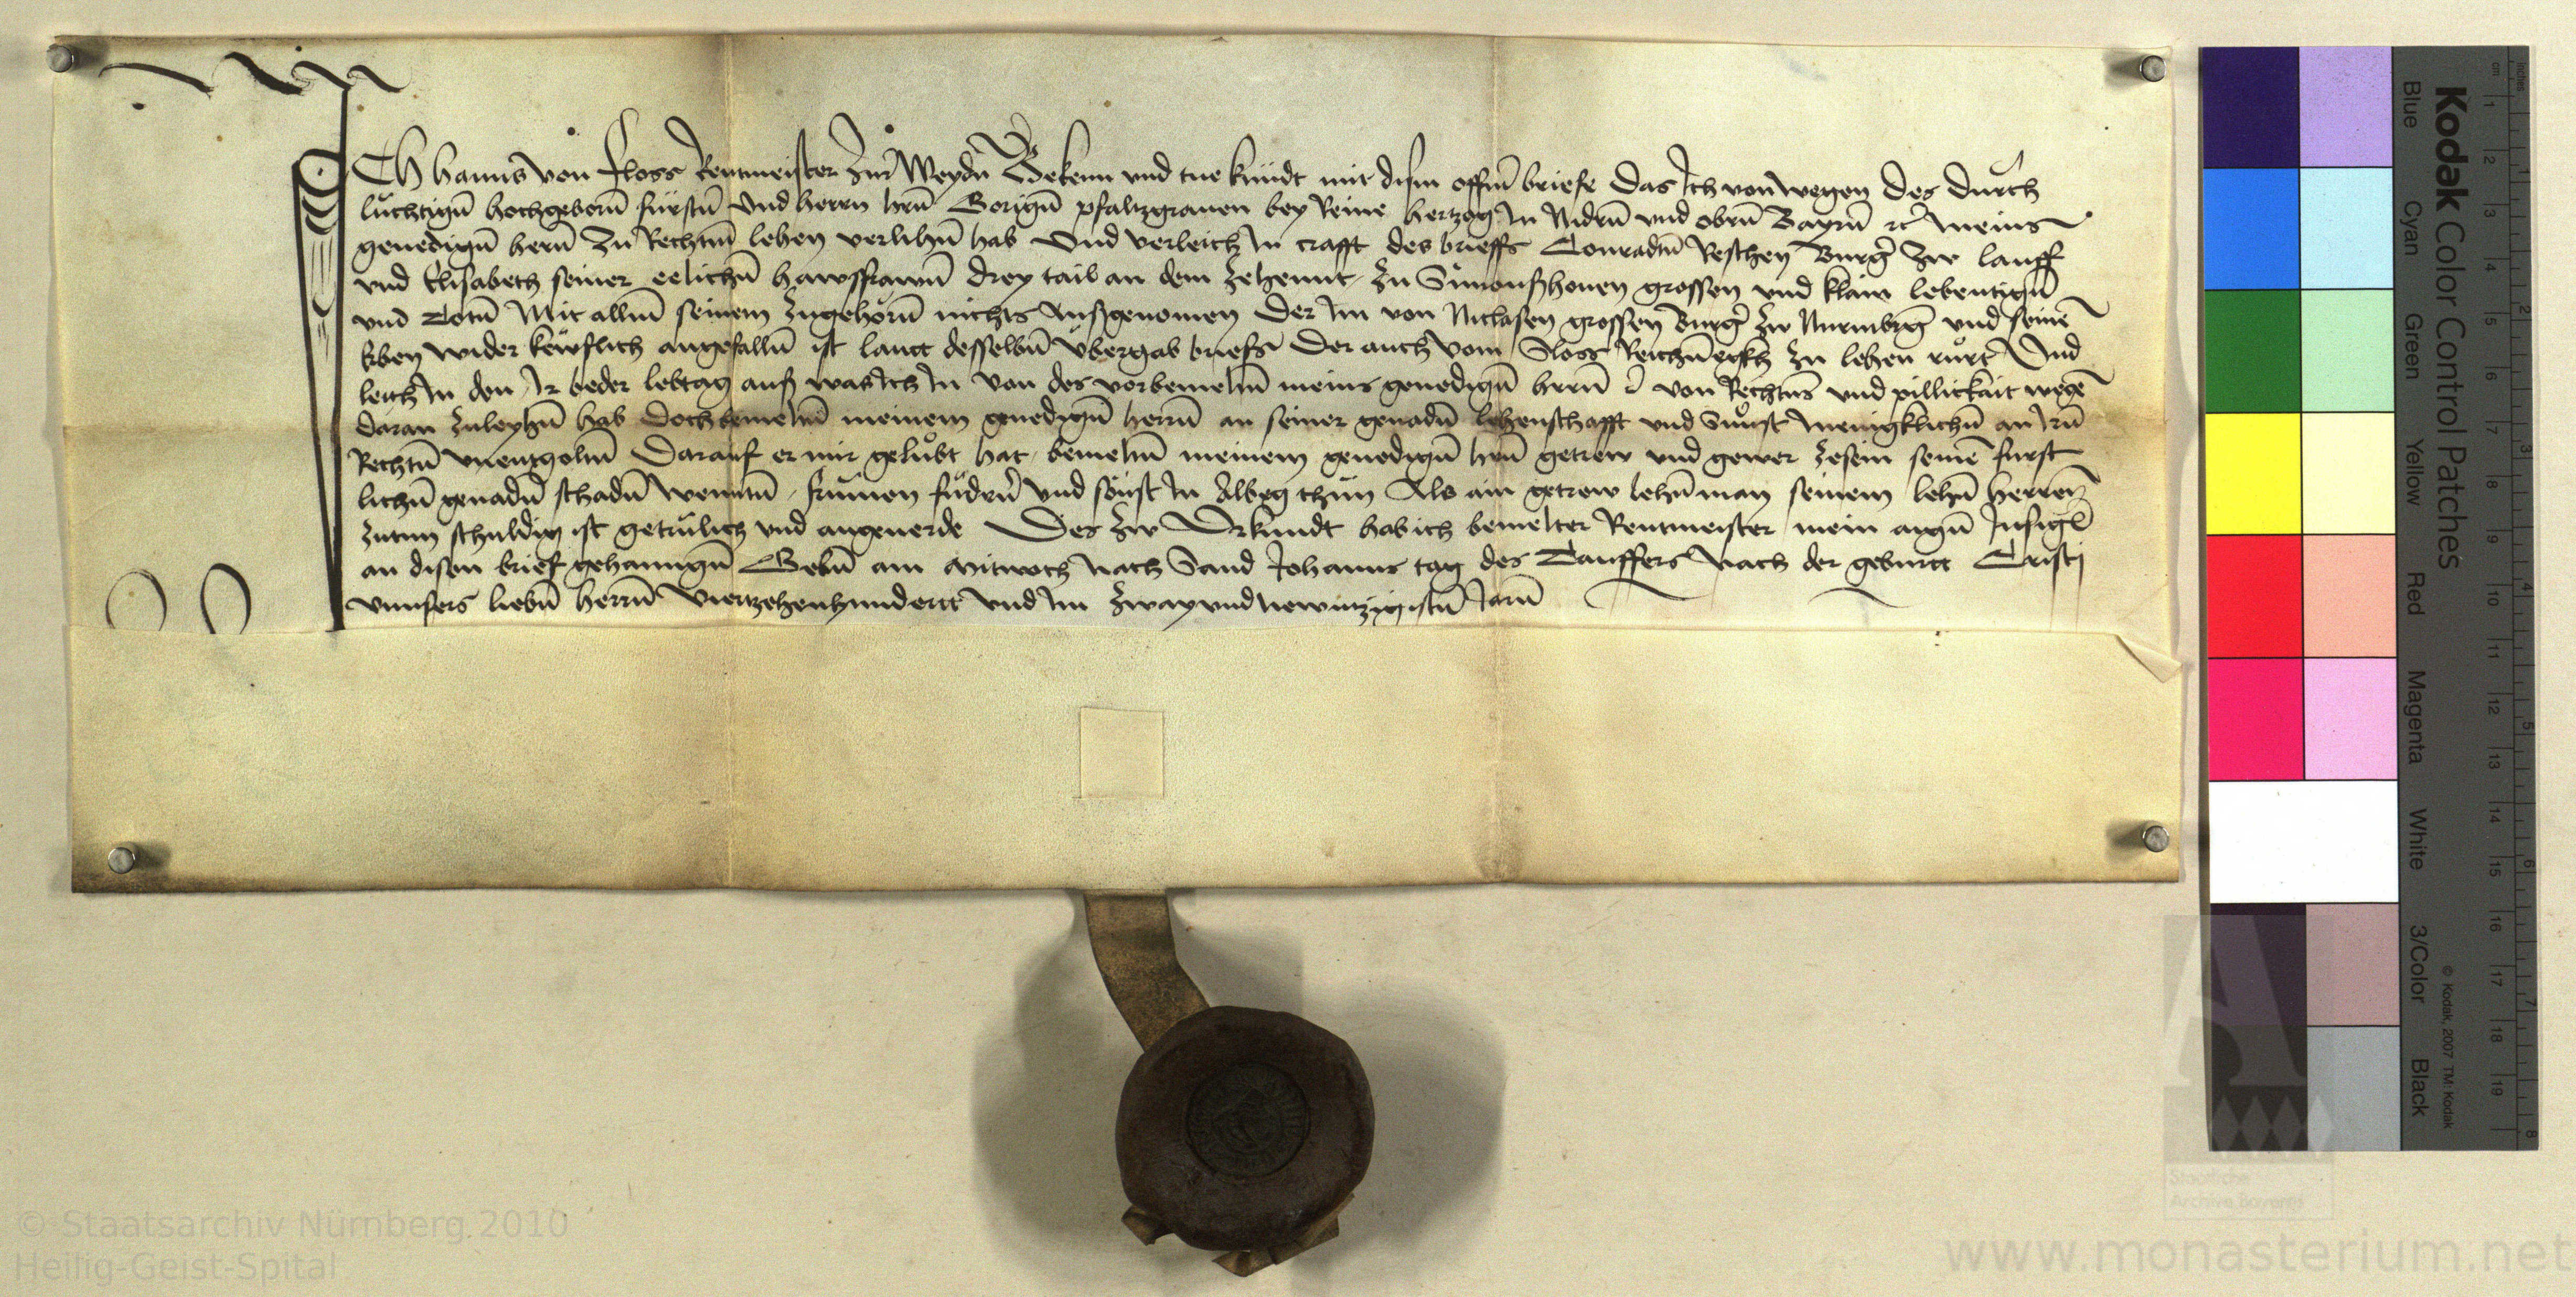 Ich hanns von floss Rentmeister Zur Weydn̄ Bekenn und tue kundt mit dism offn̄ briefe Das Ich von wegen Des Durch
luchtign̄ hochgeborn̄ fürstn̄ Und herrn hrn̄ Gorign̄ pfaltzgrauen bey Reine hertzog In Nidrn̄ und obrn̄ Bayrn̄ ꝛc̄ meins
genedign̄ hern̄ Zu Rechtm̄ lehen verlihn̄ hab Und verleich In crafft des brieffs Conradn̄ Reschen Burg̃ Zw lauff
und Elisabeth seiner eelichn̄ hawsfrawn̄ drey tail an dem Zehennt Zu Simonßhouen grossen und klain lebentign̄
und Totn̄ Mit allm̄ seinem Zugehorn̄ nichts Außgenomen Der Im von Niclasen grossen Burg̃ Zw Nurmbrḡ und seinē
Erben wider kewflich angefalln̄ ist lautt desselbn̄ Ubergab briefs Der auch vom Sloss Reichn̄eckh Zu lehen rurt Und
leich In den Ir beder lebtag auß was Ich In von des vorbemeltn̄ meins genedign̄ hern̄ ꝛc̄ von Rechtns und pillickait wegē
daran Zuleyhn̄ hab Doch bemeltn̄ meinem genedign̄ herrn̄ an seiner genadn̄ lehenschafft und Sunst menigklichn̄ an Irn̄
Rechtn̄ Unentgoltn̄ Darauf er mir gelubt hat bemeltn̄ meinem genedign̄ hern̄ getrew und gewer Zesein seinē furst
lichn̄ genadn̄ schadn̄ Wenntn̄ frumen fudrn̄ und sonst In Albeg thun Als ain getrew lehn̄man seinem lehn̄ herren
Zutun schuldig ist getrulich und angeuerde Des Zw Urkundt hab ich bemelter Rentmeister mein aign̄ Insigl
an disen brief gehanngn̄ Gebn̄ am Mitwoch Nach Sand Johanns tag des Tauffers Nach der geburtt Cristj
Unnsers liebn̄ herrn̄ Viertzehenhundertt Und Im Zway und newntzigistn̄ Jarn̄
Kodak Color Control Patches
Blue Cyan Green Yellow Red Magenta White 3/Color Black
© Kodak, 2007 TM: Kodak
inches 1 2 3 4 5 6 7 8
cm 1 2 3 4 5 6 7 8 9 10 11 12 13 14 15 16 17 18 19
© Staatsarchiv Nürnberg 2010
Heilig-Geist-Spital
Staatliche
Archive Bayerns
www.monasterium.net